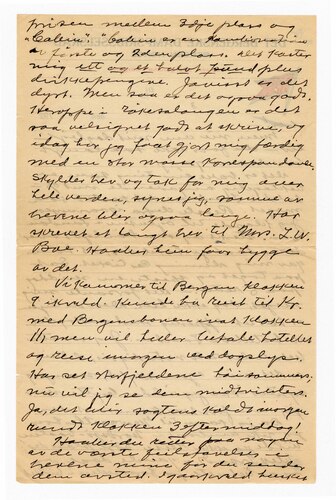 prisen mellem 3dje plass og
"Cabin". "Cabin er en kombination
av første og 2den plass. Det koster
mig ett og et halvt pund plus
drikkepengene. Javisst er det
dyrt. Men saa er det ogsaa godt.
Heroppe i røkesalongen er det
saa velsignet godt at skrive, og
idag har jeg faat gjort mig færdig
med en stor masse korrespondanse.
Skylder brev og tak for mig over
hele verden, synes jeg, samme av
brevene blir ogsaa lange. Har
skrevet et langt brev til Mrs. L. W.
Boe. Haaber hun faar hygge
av det.
Vi kommer til Bergen klokken
9 ikveld. Kunde ha reist til Kr.
med Bergensbanen inat klokken
11, men vil heller ta paa hotellet
og reise imorgen ved dagslys.
Har set høifjeldene høisommers,
nu vil jeg se dem midtvinters.
Ja, det blir sagtens koldt imorgen
rundt klokken 3 eftermiddag!
Haaber du retter paa nogen
av de værste feilstavelser i
brevene mine før du sender
dem avsted. I gaarkveld